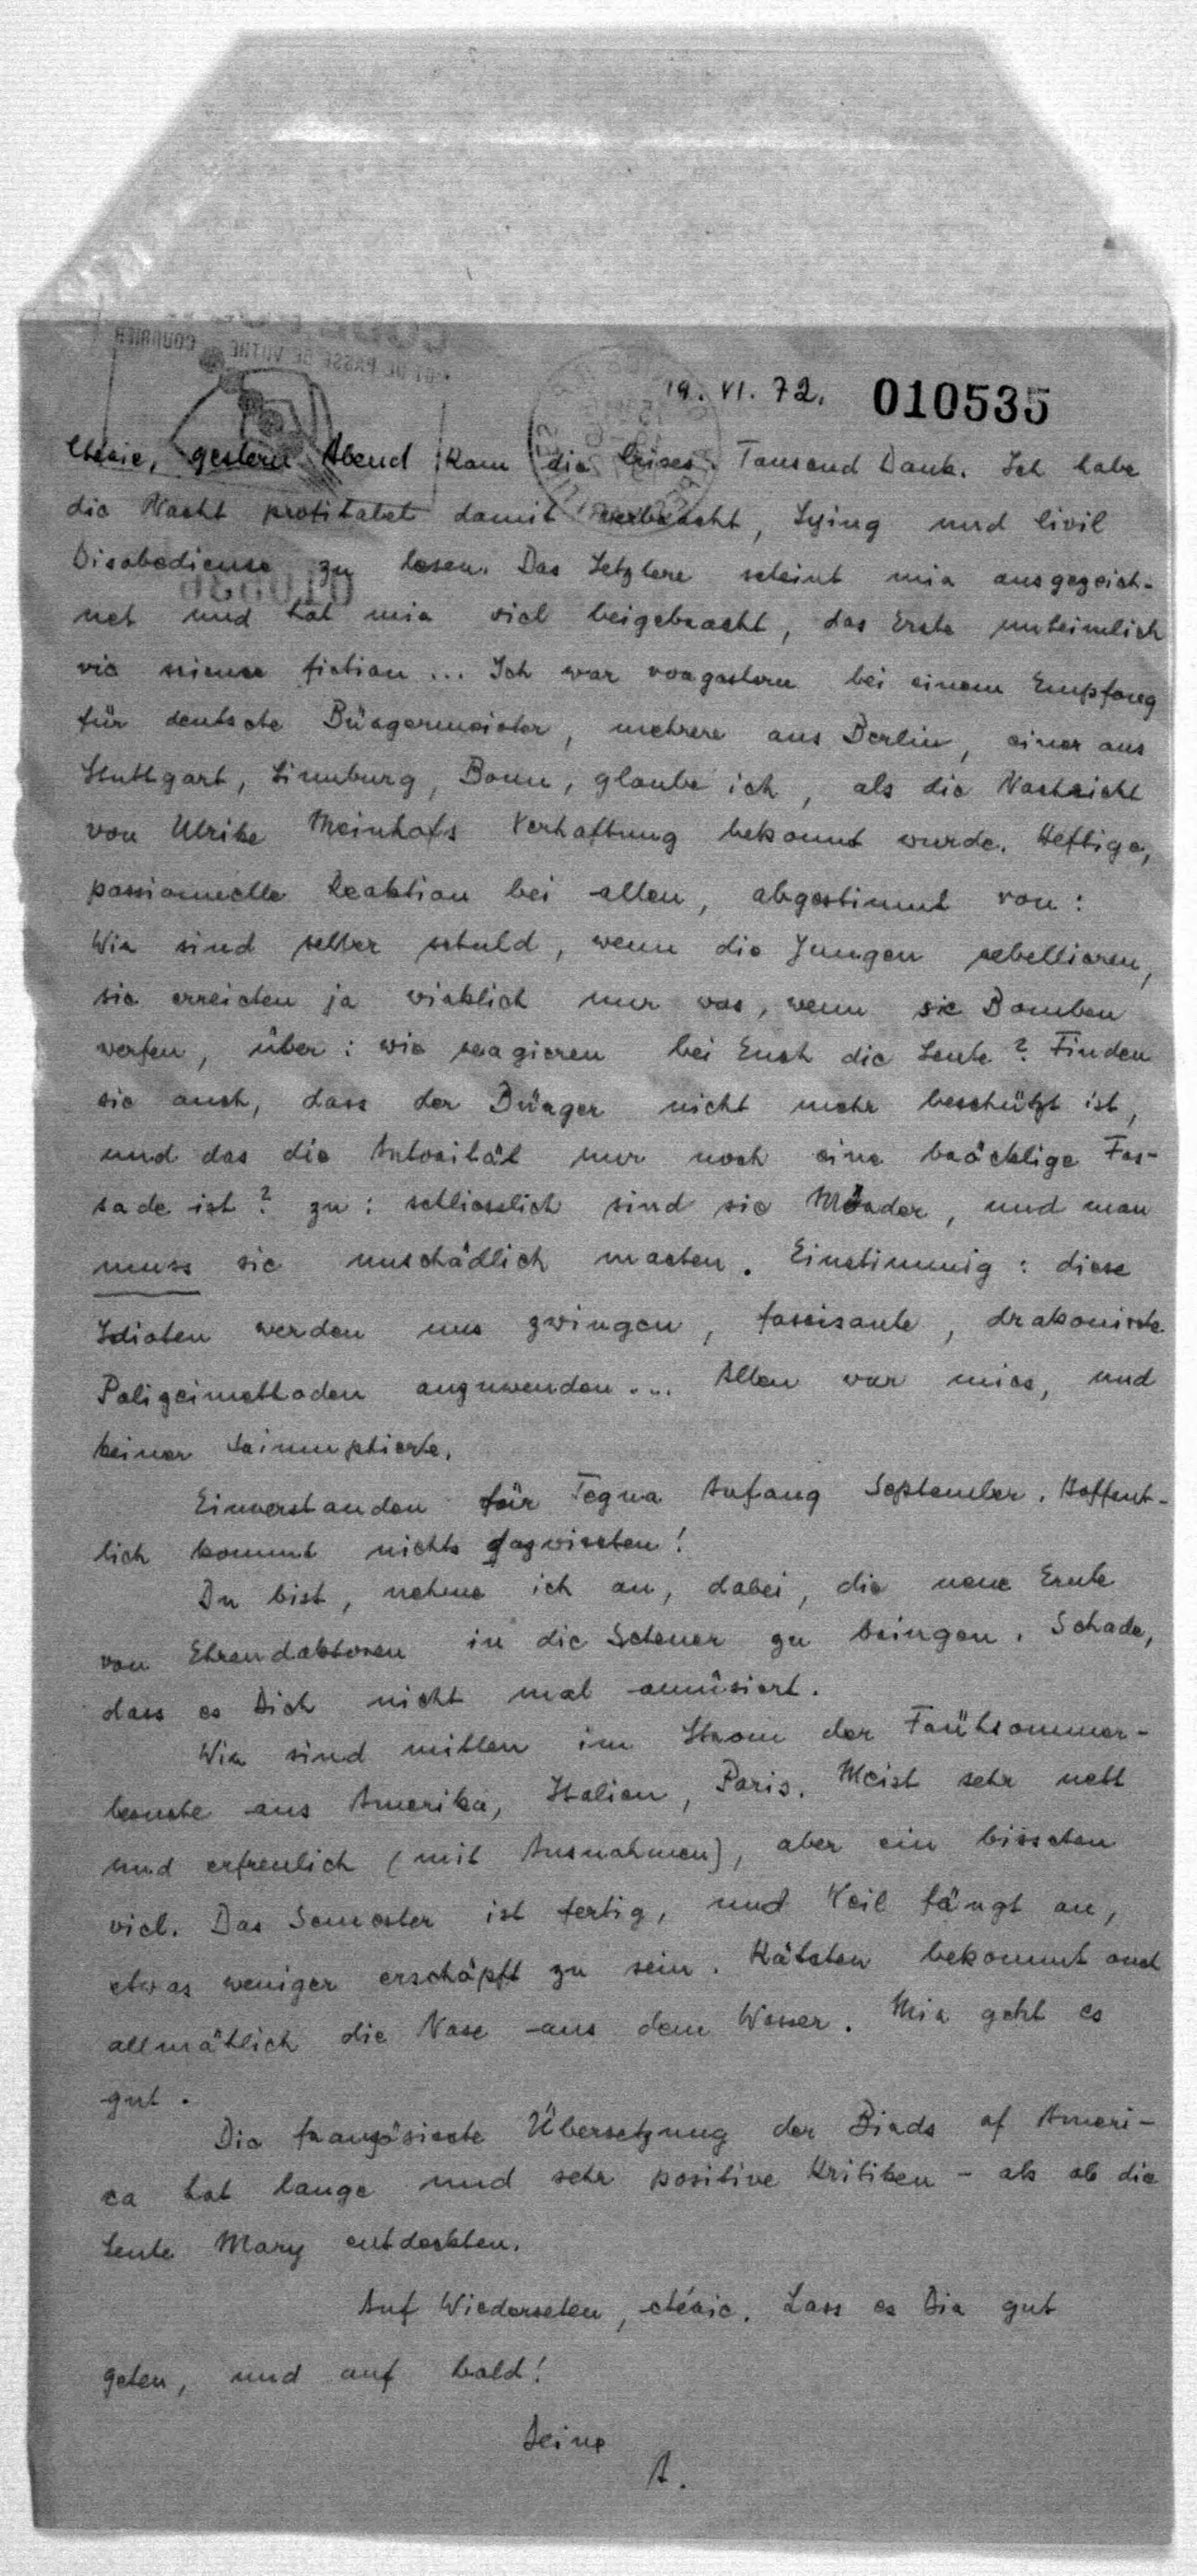 19. VI. 72. 010535
Chérie, gestern Abend kam die Crises. Tausend Dank. Ich habe
die Nacht profitabel damit verbracht, Lying und Civil
Disobedience zu lesen. Das Letztere scheint mir ausgezeich-
net und hat mir viel beigebracht, das Erste unheimlich
wie science fiction... Ich war vorgestern bei einem Empfang
für deutsche Bürgermeister, mehrere aus Berlin, einer aus
Stuttgart, Limburg, Bonn, glaube ich, als die Nachricht
von Ulrike Meinhofs Verhaftung bekannt wurde. Heftige,
passionnelle Reaktion bei allen, abgestimmt von:
Wir sind selber schuld, wenn die Jungen rebellieren,
sie erreichen ja wirklich nur was, wenn sie Bomben
werfen, über: wie reagieren bei Euch die Leute? Finden
sie auch, dass der Bürger nicht mehr beschützt ist,
und das die Autorität nur noch eine bröcklige Fas-
sade ist? zu: schliesslich sind sie Mörder, und man
muss sie unschädlich machen. Einstimmig: diese
Idioten werden uns zwingen, fascisante, drakonische
Polizeimethoden anzuwenden... Allen war mies, und
keiner triumphierte.
Einverstanden für Tegna Anfang September. Hoffent-
lich kommt nichts dazwischen!
Du bist, nehme ich an, dabei, die neue Ernte
von Ehrendoktoren in die Scheuer zu bringen. Schade,
dass es Dich nicht mal amüsiert.
Wir sind mitten im Strom der Frühsommer-
besuche aus Amerika, Italien, Paris. Meist sehr nett
und erfreulich (mit Ausnahmen), aber ein bisschen
viel. Das Semester ist fertig, und Weil fängt an,
etwas weniger erschöpft zu sein. Kätchen bekommt auch
allmählich die Nase aus dem Wasser. Mir geht es
gut.
Die französische Übersetzung der Birds of Ameri-
ca hat lange und sehr positive Kritiken - als ob die
Leute Mary entdeckten.
Auf Wiedersehen, chérie. Lass es Dir gut
gehen, und auf bald!
Deine
A.